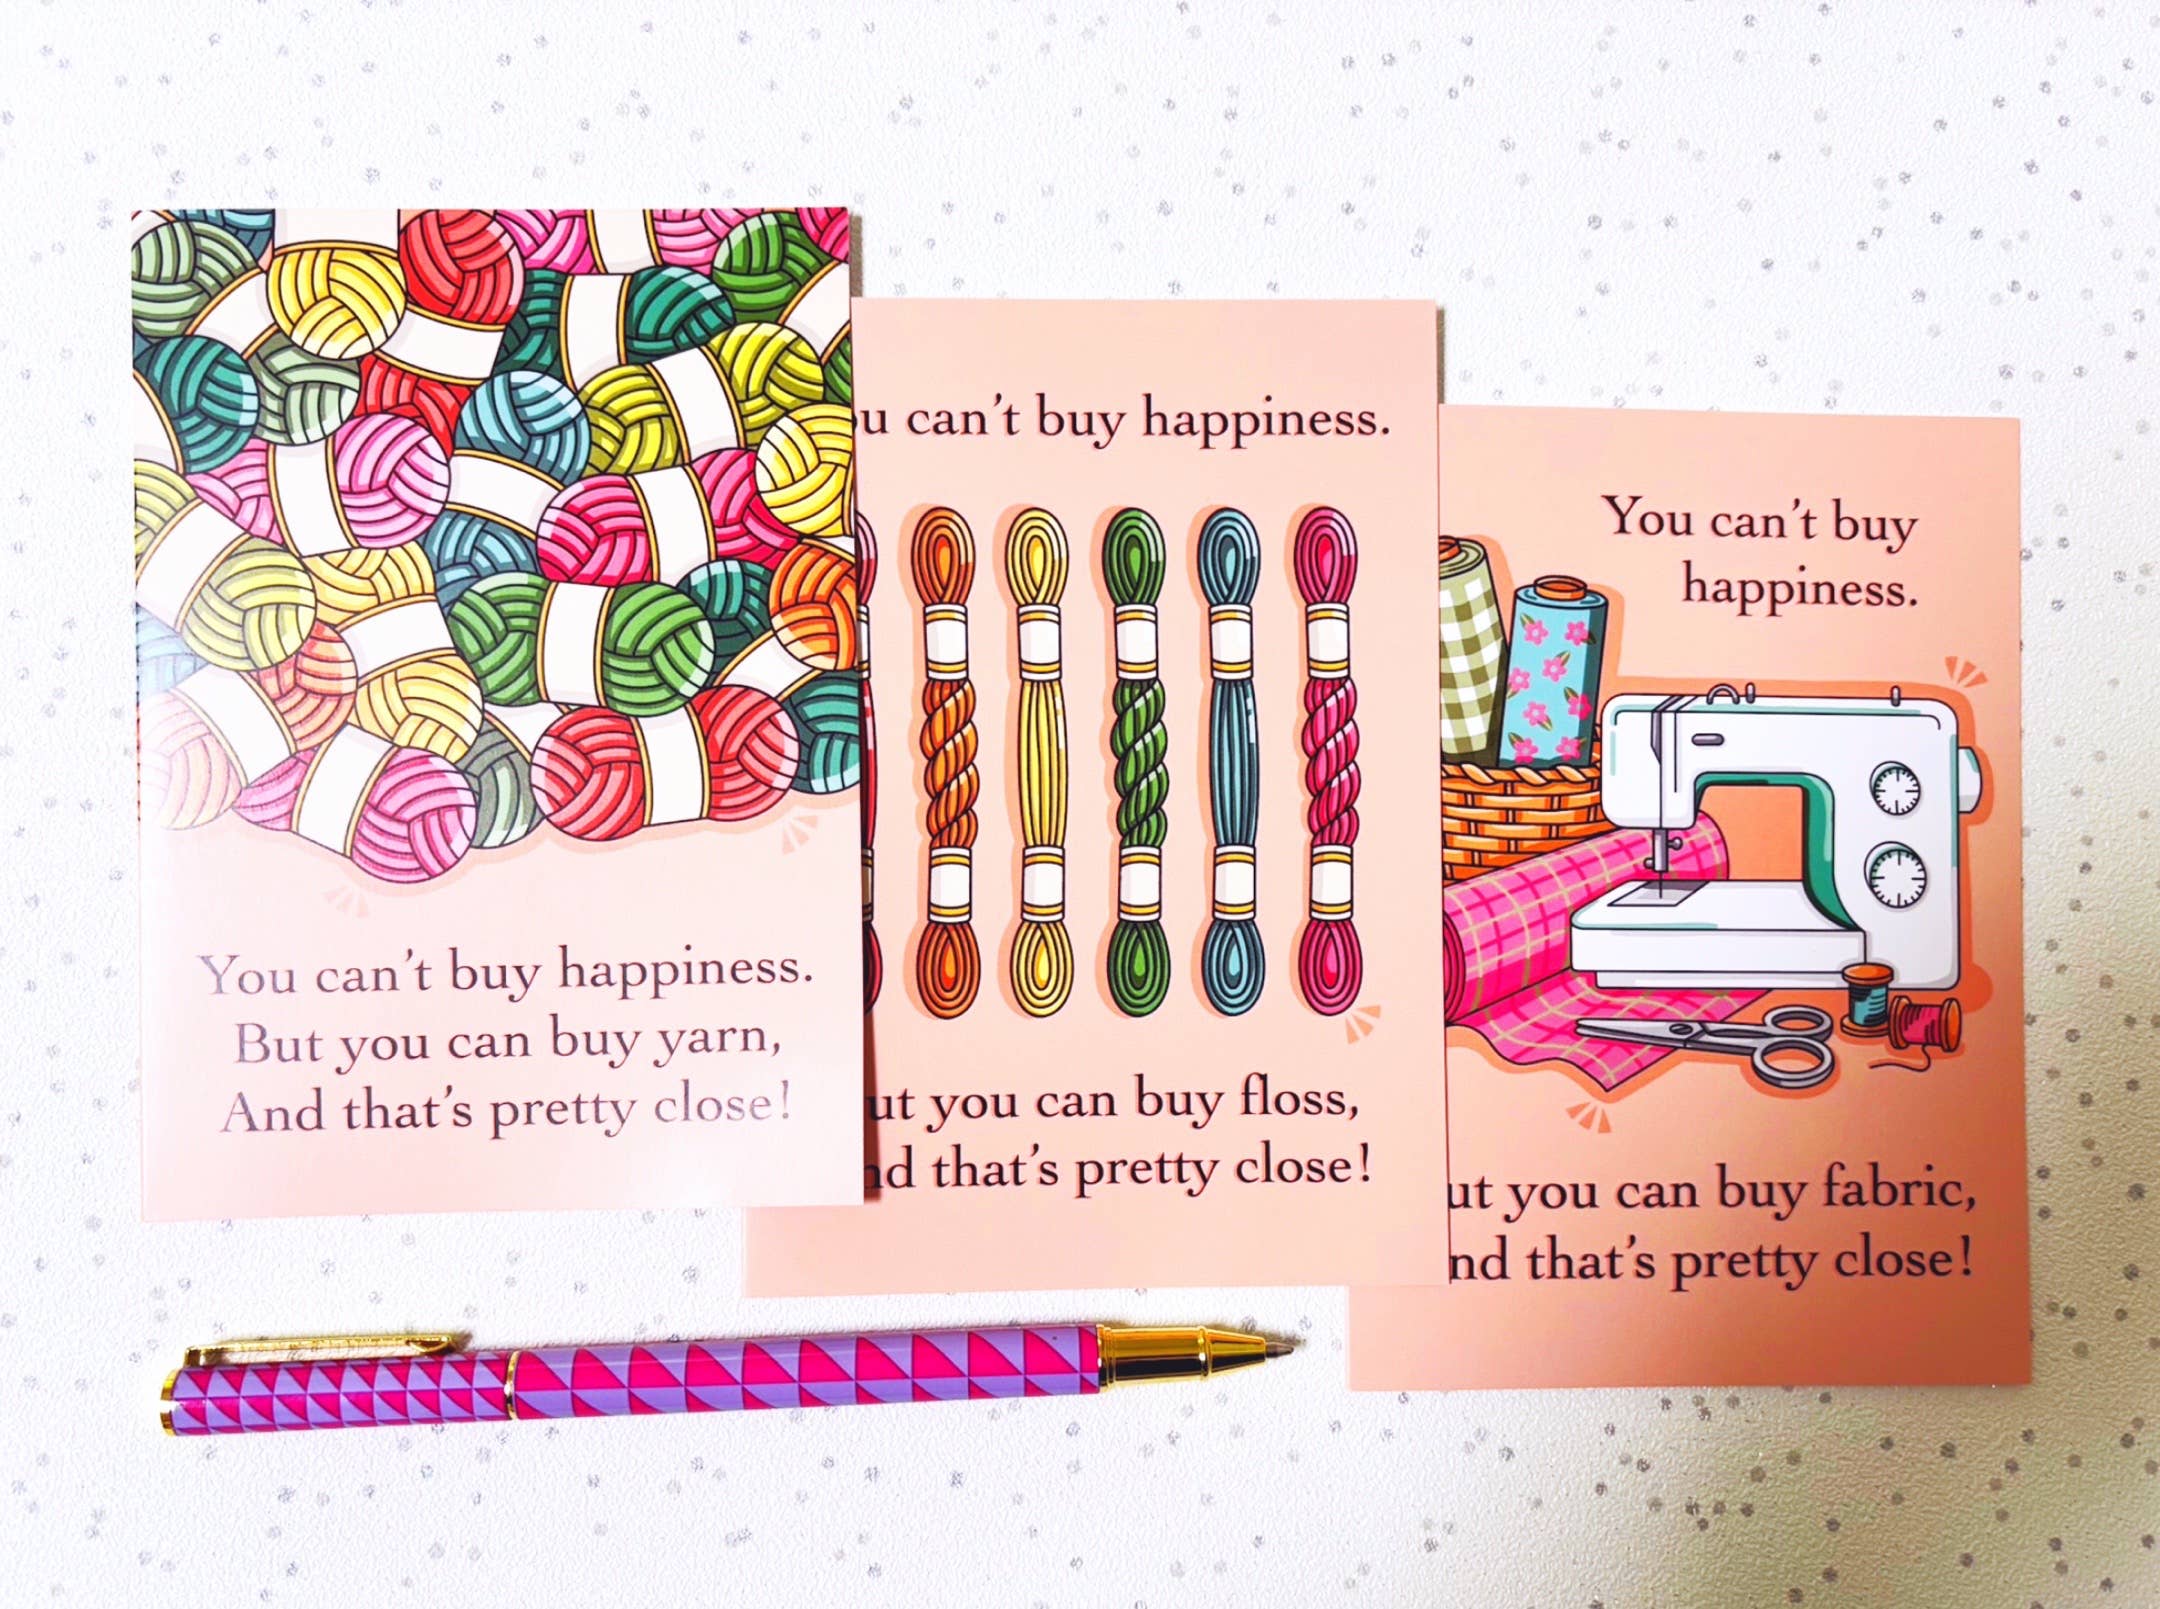 You can't buy happiness.
But you can buy yarn,
And that's pretty close!
can't buy happiness.
you can buy floss,
that's pretty close!
You can't buy
happiness.
you can buy fabric,
that's pretty close!